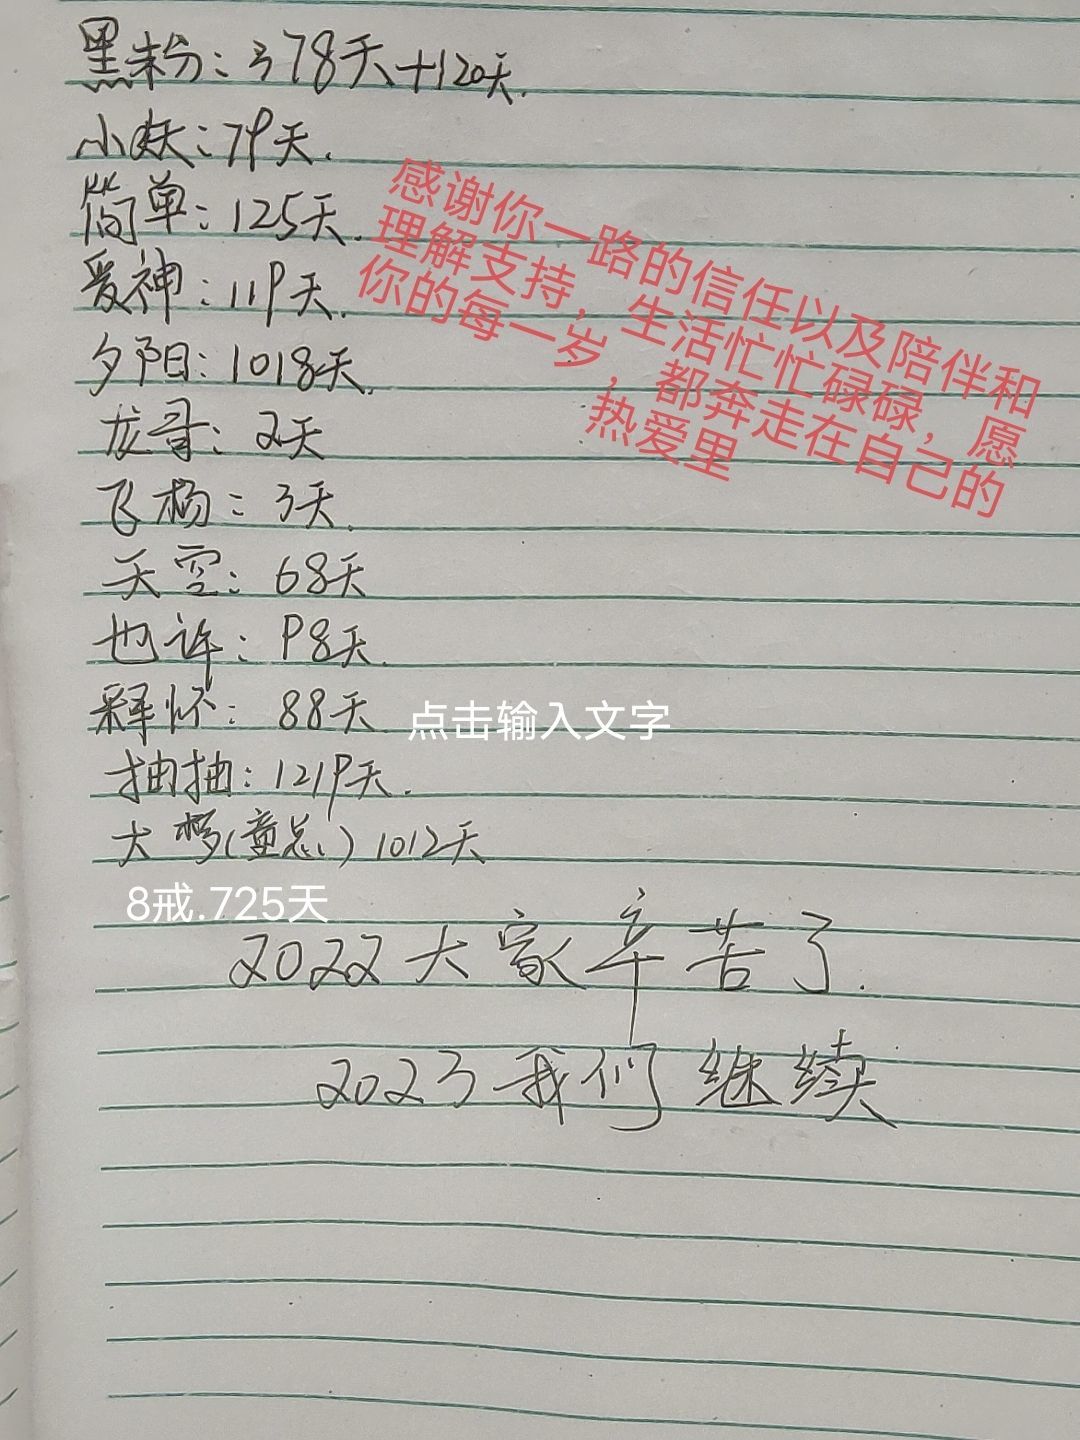 黑粉：378天+120天.
小妖：79天.
简单：125天.
爱神：119天.
夕阳：1018天.
龙哥：2天
飞杨：3天.
天空：68天
也许：98天.
释怀：88天
抽抽：1219天.
大梦(童总)1012天
8戒.725天
2022大家辛苦了.
2023我们继续
感谢你一路的信任以及陪伴和
理解支持，生活忙忙碌碌，愿
你的每一岁，都奔走在自己的
热爱里
点击输入文字